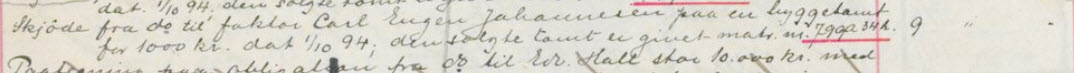 dat. 1/10 94, den solgte tomt
Skjöde fra do til faktor Carl Eugen Johannesen paa en byggetomt
for 1000 kr. dat 1/10 94; den solgte tomt er givet matr. nr. 7992 34h. 9 " "
obligation fra do til Edv. Hall stor 10.000 kr. med